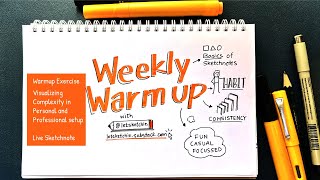 Warmup Exercise
Visualizing
Complexity in
Personal and
Professional setup
Live Sketchnote
Weekly
Warm up
with
@letsketchin
letsketchin.substack.com
Basics of
Sketchnotes
HABIT
CONSISTENCY
FUN
CASUAL
FOCUSSED